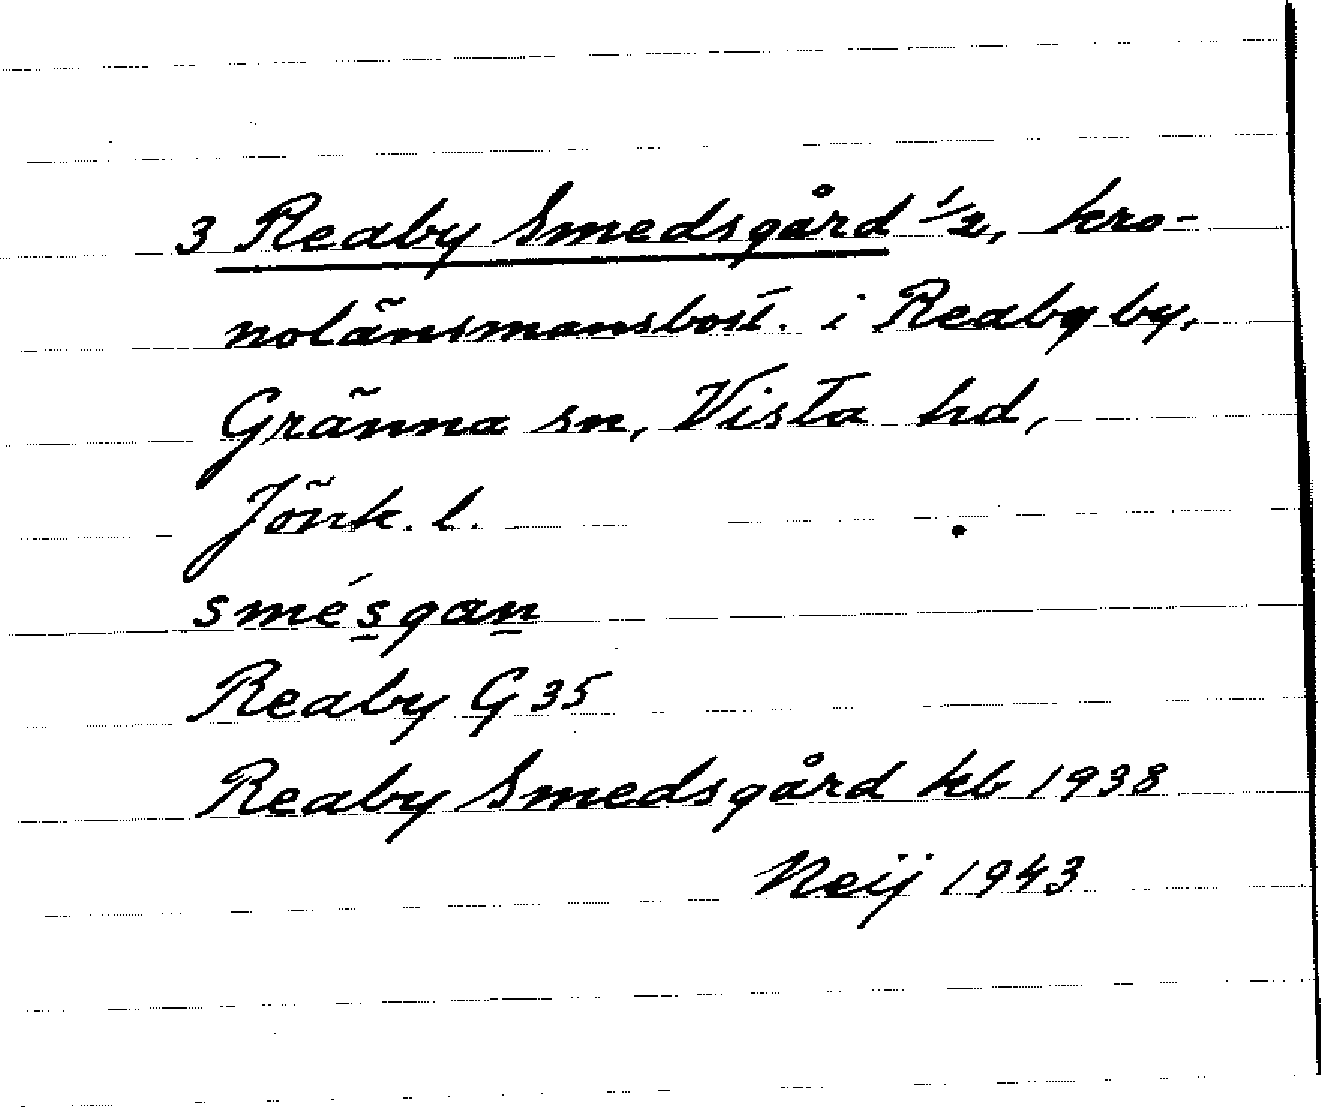 3 Reaby Smedsgård 1/2, kro-
nolänsmansbost. i Reaby by,
Gränna sn, Vista hd,
Jönk. l.
smésgan
Reaby G 35
Reaby Smedsgård kb 1938
Neij 1943